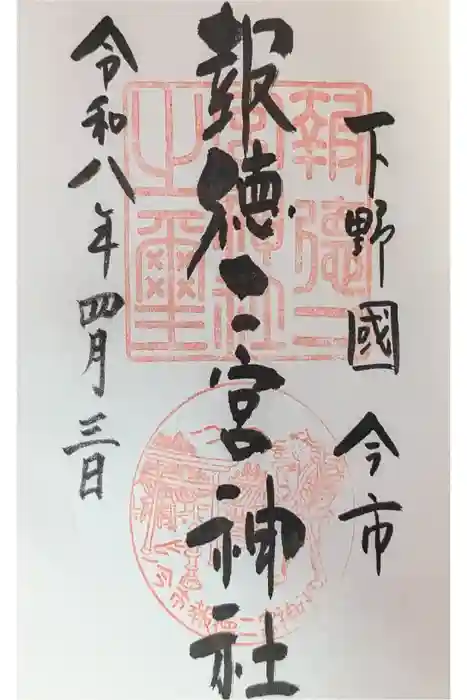 下野國 今市
報徳二宮神社
令和八年四月三日
報徳二宮神社之璽
今市報徳二宮神社